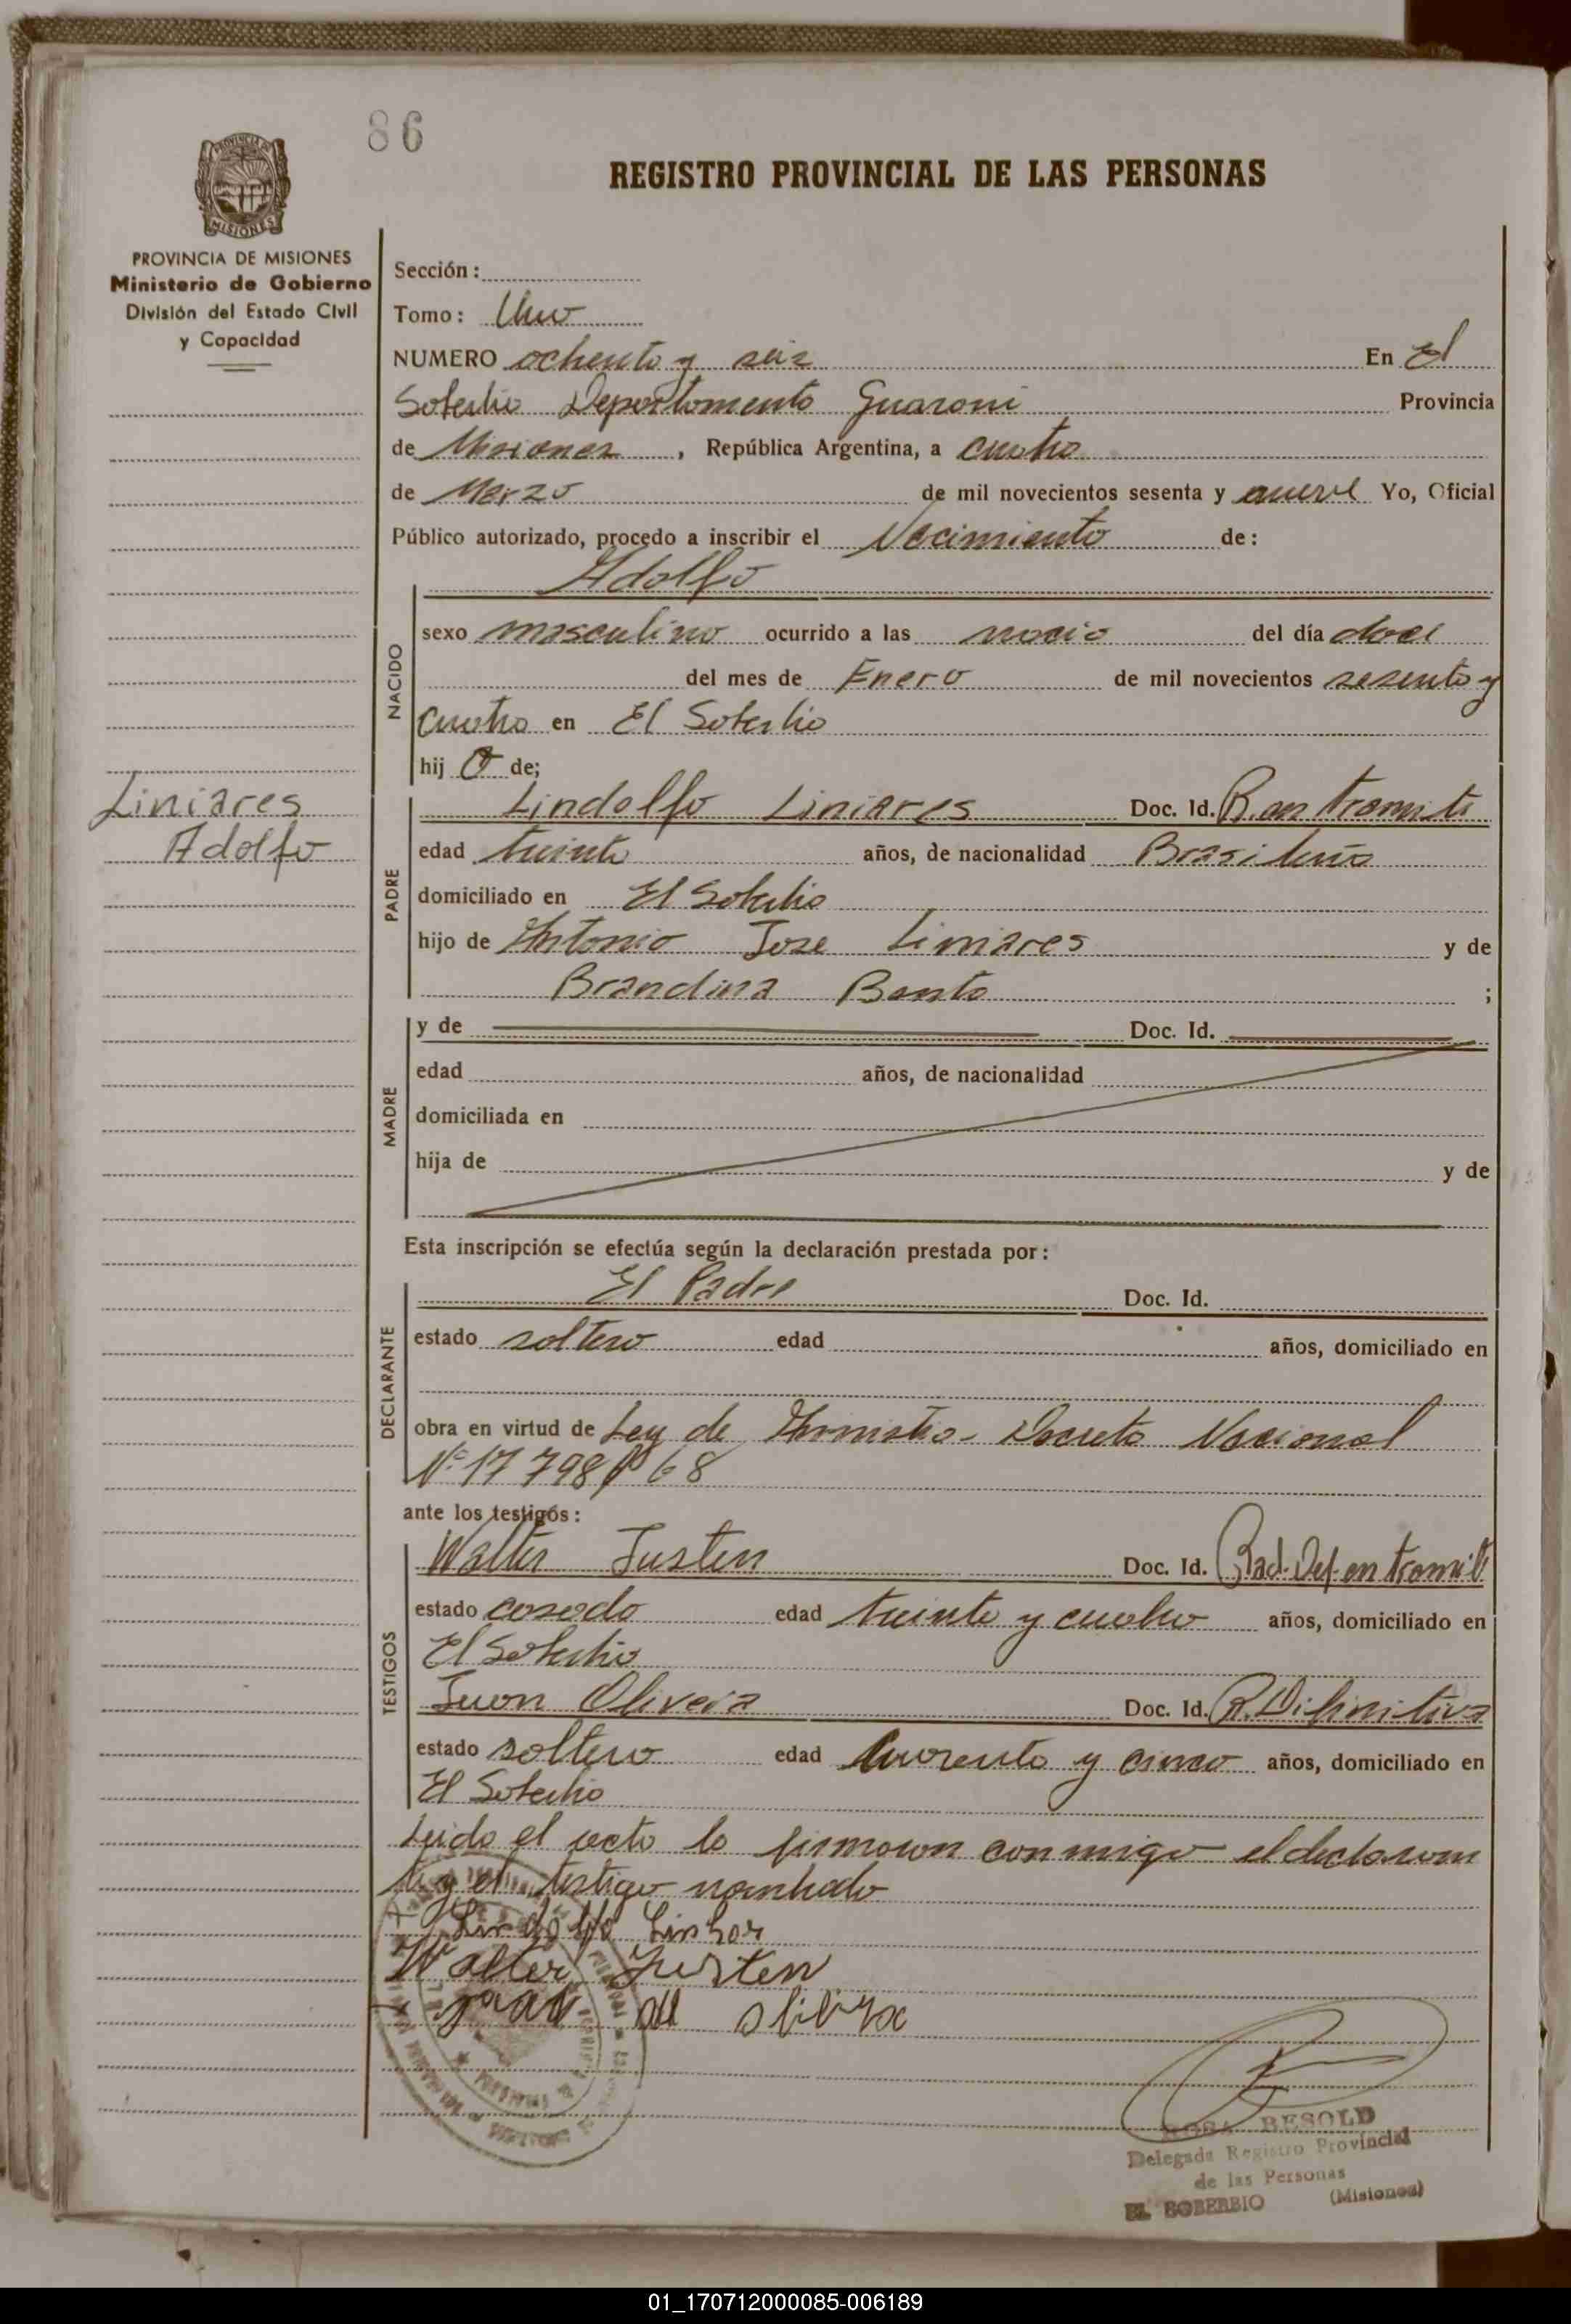 86
REGISTRO PROVINCIAL DE LAS PERSONAS
PROVINCIA DE MISIONES
Ministerio de Gobierno
División del Estado Civil
y Capacidad
Sección:
Tomo: Uno
NUMERO ochenta y seis En El
Soberbio Departamento Guarani Provincia
de Misiones, República Argentina, a cuatro
de Marzo de mil novecientos sesenta y nueve Yo, Oficial
Público autorizado, procedo a inscribir el Nacimiento de:
Adolfo
NACIDO
sexo masculino ocurrido a las del día doce
del mes de Enero de mil novecientos sesenta y
cuatro en El Soberbio
hij o de;
Liniares
Adolfo
PADRE
Lindolfo Liniares Doc. Id. R. en tramite
edad treinta años, de nacionalidad Brasileña
domiciliado en El Soberbio
hijo de Antonio Jose Liniares y de
Brandina Bento ;
MADRE
y de Doc. Id.
edad años, de nacionalidad
domiciliada en
hija de y de
Esta inscripción se efectúa según la declaración prestada por:
DECLARANTE
El Padre Doc. Id.
estado soltero edad años, domiciliado en
obra en virtud de Ley de Amnistia - Decreto Nacional
Nº 17 798/68
ante los testigós:
TESTIGOS
Walter Justen Doc. Id. Rad. Def. en tramite
estado casado edad treinta y cuatro años, domiciliado en
El Soberbio
Juan Oliveira Doc. Id. R. Difinitiva
estado soltero edad cuarenta y cinco años, domiciliado en
El Soberbio
Leido el acta la firman conmigo el declaran
te y el testigo nombrado
Lindolfo
Walter Justen
ROSA BESOLD
Delegada Registro Provincial
de las Personas
EL SOBERBIO (Misiones)
01_170712000085-006189